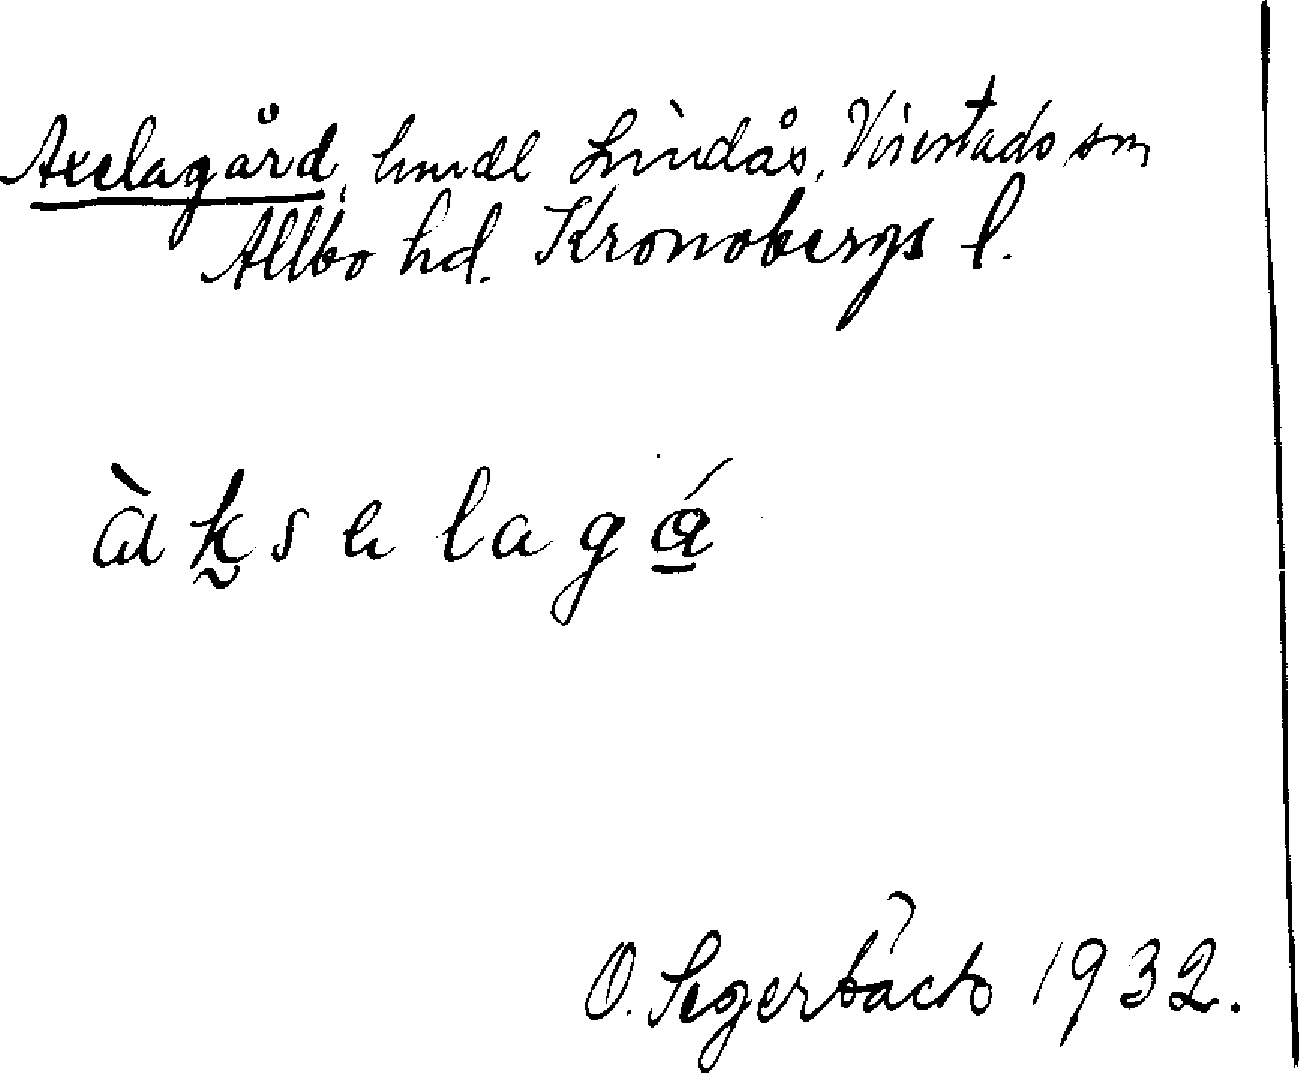 Axelagård, hmdl Lindås, Virestads sn
Allbo hd. Kronobergs l.
àks e lagá
O. Segerbäck 1932.